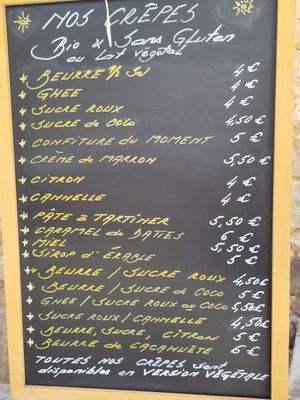 NOS CRÊPES
Bio & Sans Gluten
au Lait végétal
BEURRE 1/2 Sel 4 €
GHEE 4 €
SUCRE ROUX 4 €
SUCRE de COCO 4,50 €
CONFITURE DU MOMENT 5 €
CRÈME DE MARRON 5,50 €
CITRON 4 €
CANNELLE 4 €
PÂTE À TARTINER 5,50 €
CARAMEL DE DATTES 6 €
MIEL 5,50 €
SIROP D'ÉRABLE 5 €
BEURRE / SUCRE ROUX 4,50 €
BEURRE / SUCRE DE COCO 5 €
GHEE / SUCRE ROUX ou COCO 5,50 €
SUCRE ROUX / CANNELLE 4,50 €
BEURRE, SUCRE, CITRON 5 €
BEURRE DE CACAHUÈTE 6 €
TOUTES NOS CRÊPES sont
disponibles en VERSION VÉGÉTALE